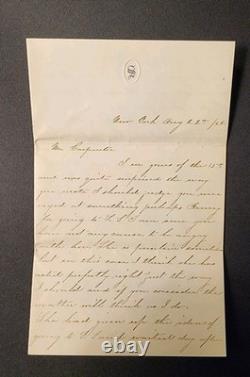 New York Aug 22nd
Mr Carpenter
I am yours of the 15th
and was quite surprised the way
you wrote I should judge you were
angry at something perhaps
for going to I am sure you
have not any cause to be angry
with her. She is peculiar sometimes
but in this case I think she has
acted perfectly right just the way
I should and if you consider the
matter will think as I do.
She had given up the idea of
going to day after